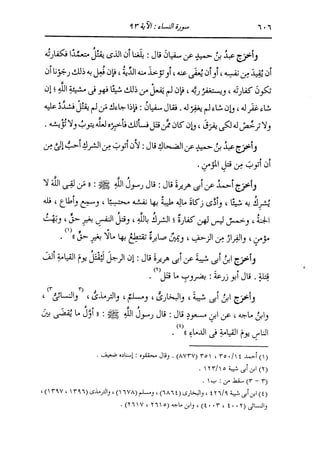 ٦٠٦ سورة النساء : الآية ٩٣
وأخرج عبدُ بنُ حميدٍ عن سفيانَ قال : بلغنا أن الذى يقتلُ متعمِّدًا فكفارتُه
أن يُقيدَ من نفسِه ، أو أن يُعفَى عنه ، أو تؤخذَ منه الديةُ ، فإن فُعِل به ذلك رجَوْنا أن
تكونَ كفارتَه ، ويستغفرُ ربَّه ، فإن لم يفعلْ من ذلك شيئًا فهو فى مشيئةِ اللهِ ؛ إن
شاء غفَر له ، وإن شاء لم يغفِرْ له . فقال سفيانُ : فإذا جاءك مَن لم يقتُلْ فشدِّدْ عليه
ولا ترخِّصْ له لكى يفرَقَ ، وإن كان ممن قتَل فسألك فأخبِرْه لعله يتوبُ ولا تُؤْيِسْه .
وأخرج عبدُ بنُ حميدٍ عن الضحاكِ قال : لأن أتوبَ من الشركِ أحبُّ إلىَّ من
أن أتوبَ مِن قتلِ المؤمنِ .
وأخرج أحمدُ عن أبى هريرةَ قال : قال رسولُ اللهِ ﷺ : « مَن لقِى اللهَ لا
يُشرِكُ به شيئًا ، وأدَّى زكاةَ مالِه طيبةً بها نفسُه محتسِبًا ، وسمِع وأطاع ، فله
الجنةُ ، وخمسٌ ليس لهن كفارةٌ ؛ الشركُ باللهِ ، وقتلُ النفسِ بغيرِ حقٍّ ، وبَهْتُ
مؤمنٍ ، والفِرارُ من الزحفِ ، ويمينٌ صابرةٌ تقتطعُ بها مالًا بغيرِ حقٍّ »(١) .
وأخرج ابنُ أبى شيبةَ عن أبى هريرةَ قال : إن الرجلَ لَيُقتَلُ يومَ القيامةِ ألفَ
قتلةٍ . قال أبو زرعةَ : بضروبِ ما قتَل(٢) .
وأخرج ابنُ أبى شيبةَ ، والبخارىُّ ، ومسلمٌ ، والترمذىُّ ، (٣)والنسائىُّ(٣) ،
وابنُ ماجه ، عن ابنِ مسعودٍ قال : قال رسولُ اللهِ ﷺ : « أوَّلُ ما يُقضَى بينَ
الناسِ يومَ القيامةِ فى الدماءِ »(٤) .
(١) أحمد ٣٥٠/١٤ ، ٣٥١ (٨٧٣٧) . وقال محققوه : إسناده ضعيف .
(٢) ابن أبى شيبة ١٢٣/١٥ .
(٣ - ٣) سقط من : ب١ .
(٤) ابن أبى شيبة ٤٢٦/٩ ، والبخارى (٦٨٦٤) ، ومسلم (١٦٧٨) ، والترمذى (١٣٩٦ ، ١٣٩٧) ،
والنسائى (٤٠٠٢ ، ٤٠٠٣) ، وابن ماجه (٢٦١٥ ، ٢٦١٧) .